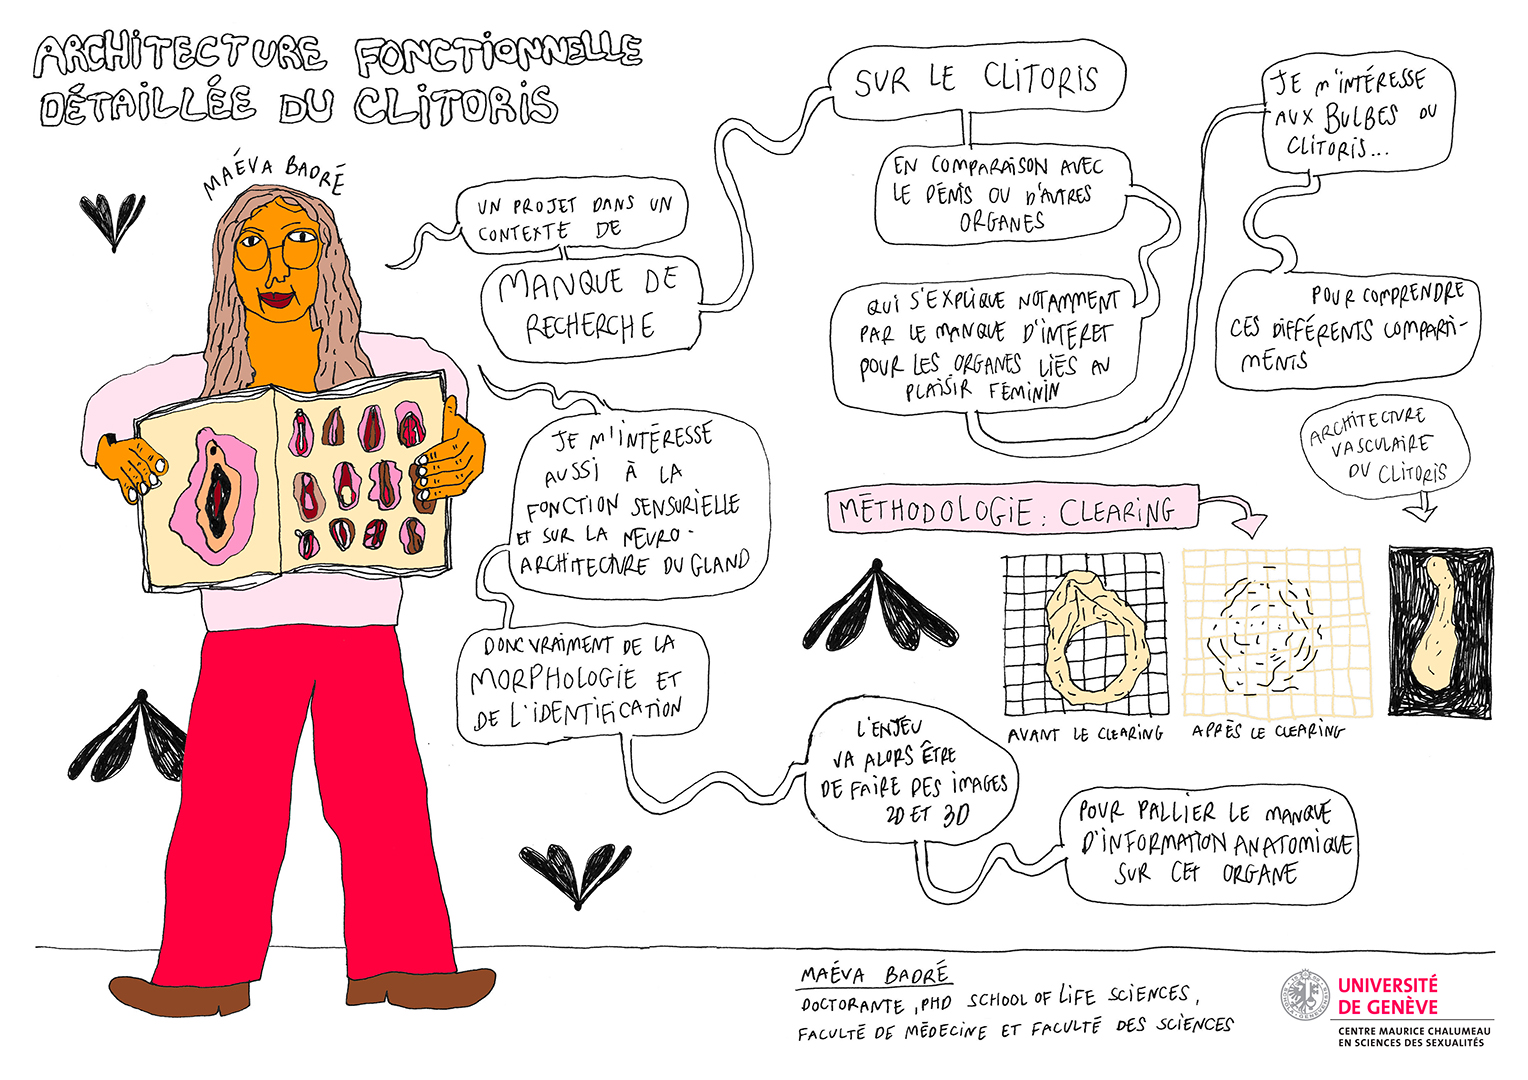 ARCHITECTURE FONCTIONNELLE
DÉTAILLÉE DU CLITORIS
MAÉVA BADRÉ
UN PROJET DANS UN
CONTEXTE DE
MANQUE DE
RECHERCHE
SUR LE CLITORIS
EN COMPARAISON AVEC
LE PÉNIS OU D'AUTRES
ORGANES
QUI S'EXPLIQUE NOTAMMENT
PAR LE MANQUE D'INTÉRET
POUR LES ORGANES LIÉS AU
PLAISIR FÉMININ
JE M'INTÉRESSE
AUX BULBES DU
CLITORIS...
POUR COMPRENDRE
CES DIFFÉRENTS COMPARTI-
MENTS
JE M'INTÉRESSE
AUSSI À LA
FONCTION SENSURIELLE
ET SUR LA NEURO-
ARCHITECTURE DU GLAND
DONC VRAIMENT DE LA
MORPHOLOGIE ET
DE L'IDENTIFICATION
L'ENJEU
VA ALORS ÊTRE
DE FAIRE DES IMAGES
2D ET 3D
POUR PALLIER LE MANQUE
D'INFORMATION ANATOMIQUE
SUR CET ORGANE
MÉTHODOLOGIE : CLEARING
AVANT LE CLEARING
APRÈS LE CLEARING
ARCHITECTURE
VASCULAIRE
DU CLITORIS
MAÉVA BADRÉ
DOCTORANTE, PHD SCHOOL OF LIFE SCIENCES,
FACULTÉ DE MÉDECINE ET FACULTÉ DES SCIENCES
UNIVERSITÉ
DE GENÈVE
CENTRE MAURICE CHALUMEAU
EN SCIENCES DES SEXUALITÉS